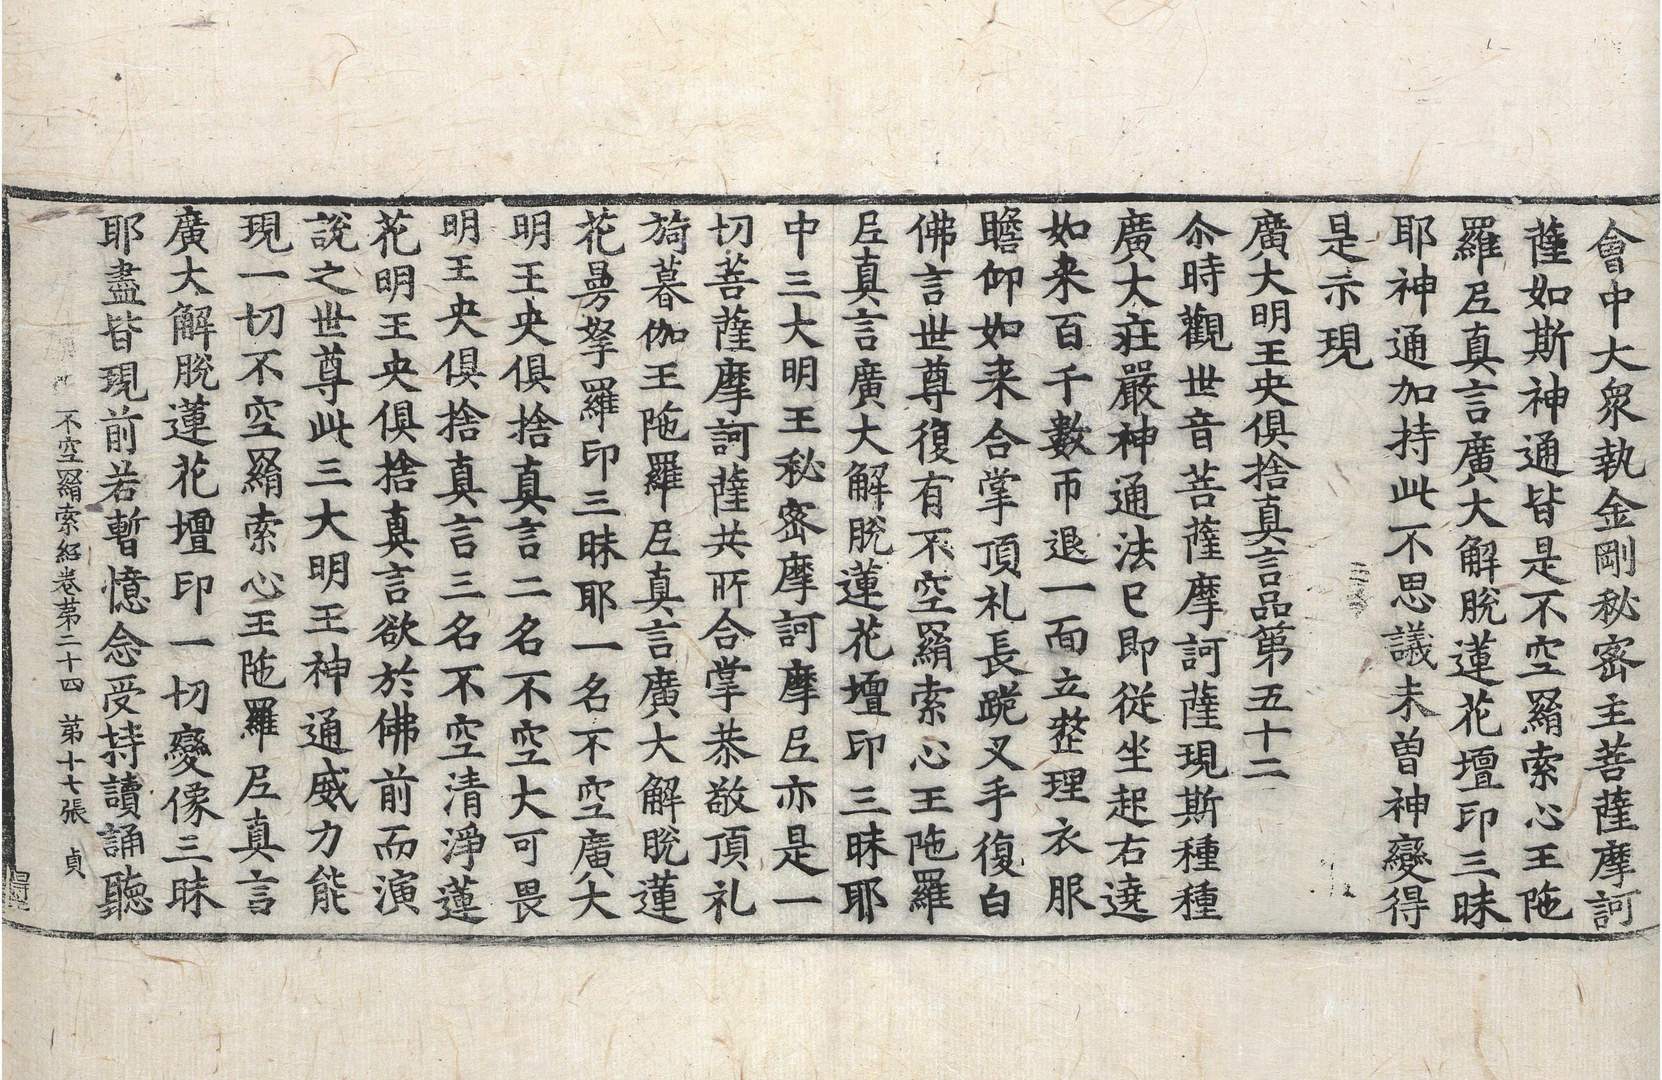 會中大衆執金剛秘密主菩薩摩訶
薩如斯神通皆是不空羂索心王陁
羅尼真言廣大解脫蓮花壇印三昧
耶神通加持此不思議未曾神變得
是示現
廣大明王央俱捨真言品第五十二
尒時觀世音菩薩摩訶薩現斯種種
廣大莊嚴神通法已即從坐起右遶
如来百千數帀退一面立整理衣服
瞻仰如来合掌頂礼長跪叉手復白
佛言世尊復有不空羂索心王陁羅
尼真言廣大解脫蓮花壇印三昧耶
中三大明王秘密摩訶摩尼亦是一
切菩薩摩訶薩共所合掌恭敬頂礼
旖暮伽王陁羅尼真言廣大解脫蓮
花曼拏羅印三昧耶一名不空廣大
明王央俱捨真言二名不空大可畏
明王央俱捨真言三名不空清淨蓮
花明王央俱捨真言欲於佛前而演
說之世尊此三大明王神通威力能
現一切不空羂索心王陁羅尼真言
廣大解脫蓮花壇印一切變像三昧
耶盡皆現前若暫憶念受持讀誦聽
不空羂索經卷第二十四 第十七張 貞